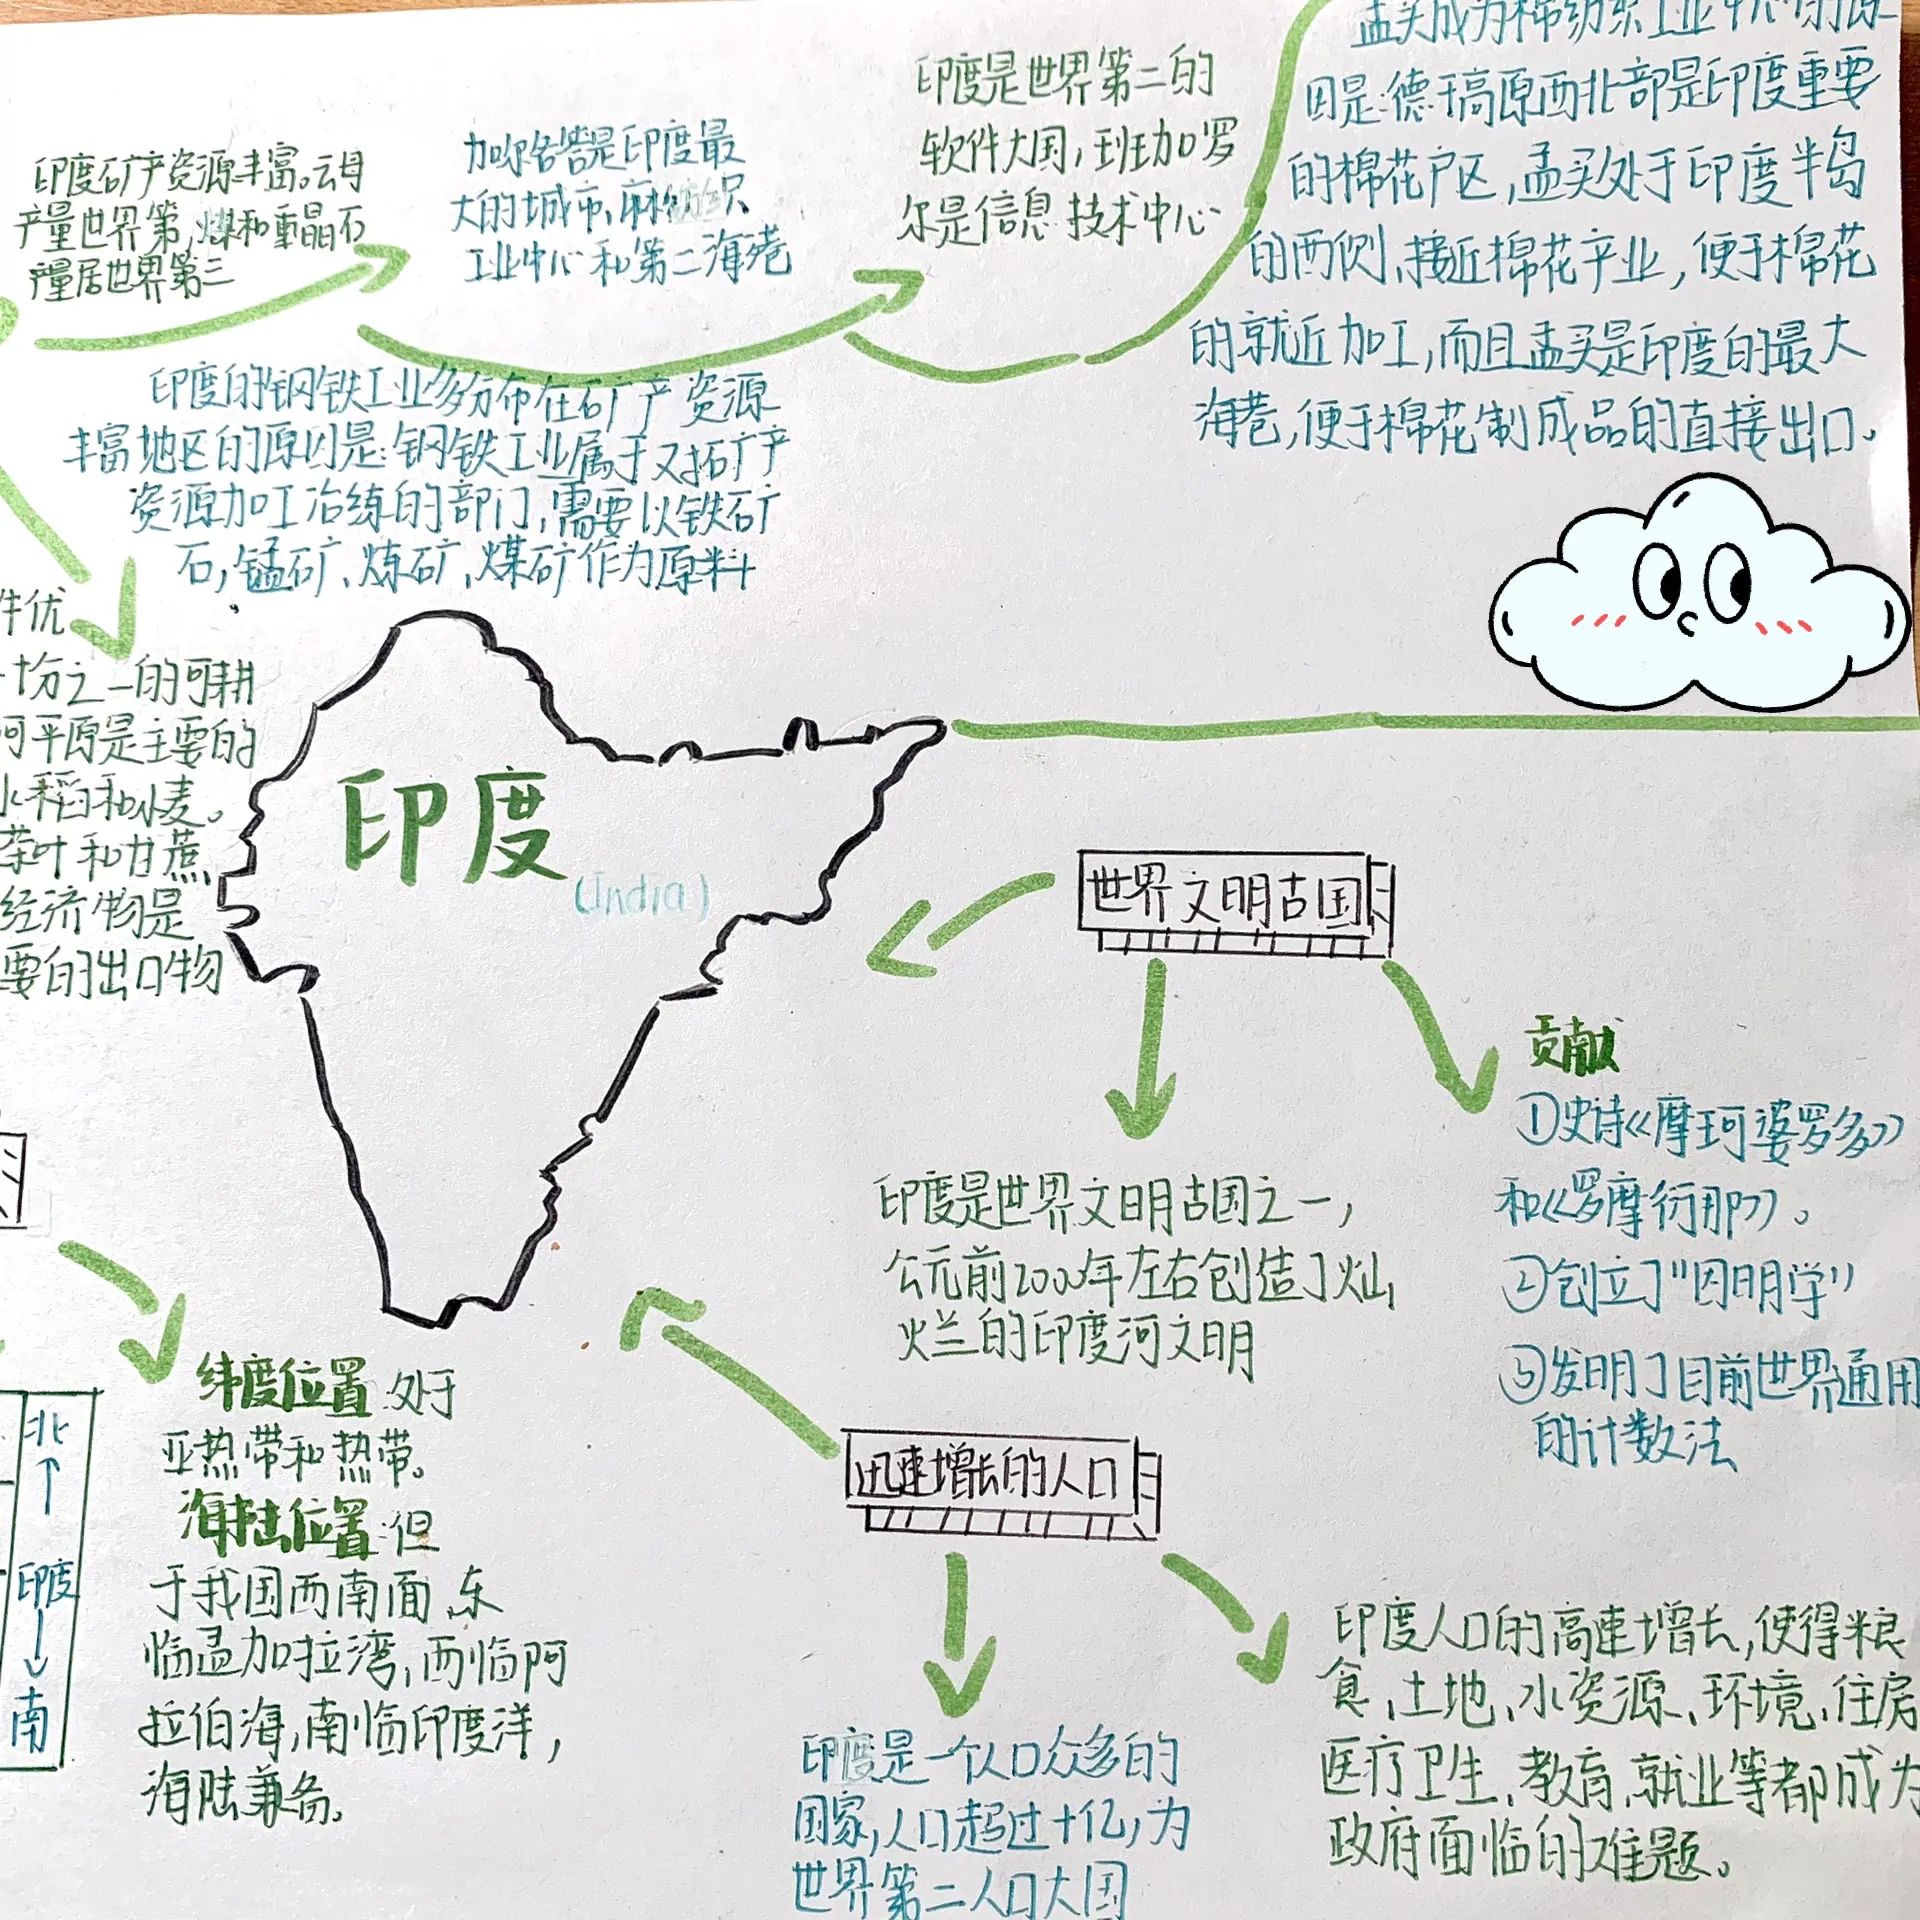 孟买成为棉纺织工业中心的原
因是:德干高原西北部是印度重要
的棉花产区,孟买处于印度半岛
的西侧,接近棉花产业,便于棉花
的就近加工,而且孟买是印度的最大
海巷,便于棉花制成品的直接出口。
印度是世界第二的
软件大国,班加罗
尔是信息技术中心
加尔各答是印度最
大的城市,麻纺织
工业中心和第二海港
印度矿产资源丰富。云母
产量世界第一,煤和重晶石
产量居世界第三
印度的钢铁工业多分布在矿产资源
丰富地区的原因是:钢铁工业属于对矿产
资源加工冶练的部门,需要以铁矿
石,锰矿、炼矿、煤矿作为原料
件优
十分之一的可耕
河平原是主要的
水稻和小麦。
茶叶和甘蔗
经济物是
要的出口物
印度
(India)
世界文明古国
贡献
①史诗《摩珂婆罗多》
和《罗摩衍那》。
②创立了"因明学"
③发明了目前世界通用
的计数法
印度是世界文明古国之一,
公元前2000年左右创造了灿
烂的印度河文明
北
印度
南
纬度位置:处于
亚热带和热带。
海陆位置:但
于我国西南面、东
临孟加拉湾,西临阿
拉伯海,南临印度洋,
海陆兼备。
迅速增长的人口
印度是一个人口众多的
国家,人口超过十亿,为
世界第二人口大国
印度人口的高速增长,使得粮
食、土地、水资源、环境、住房
医疗卫生、教育、就业等都成为
政府面临的难题。